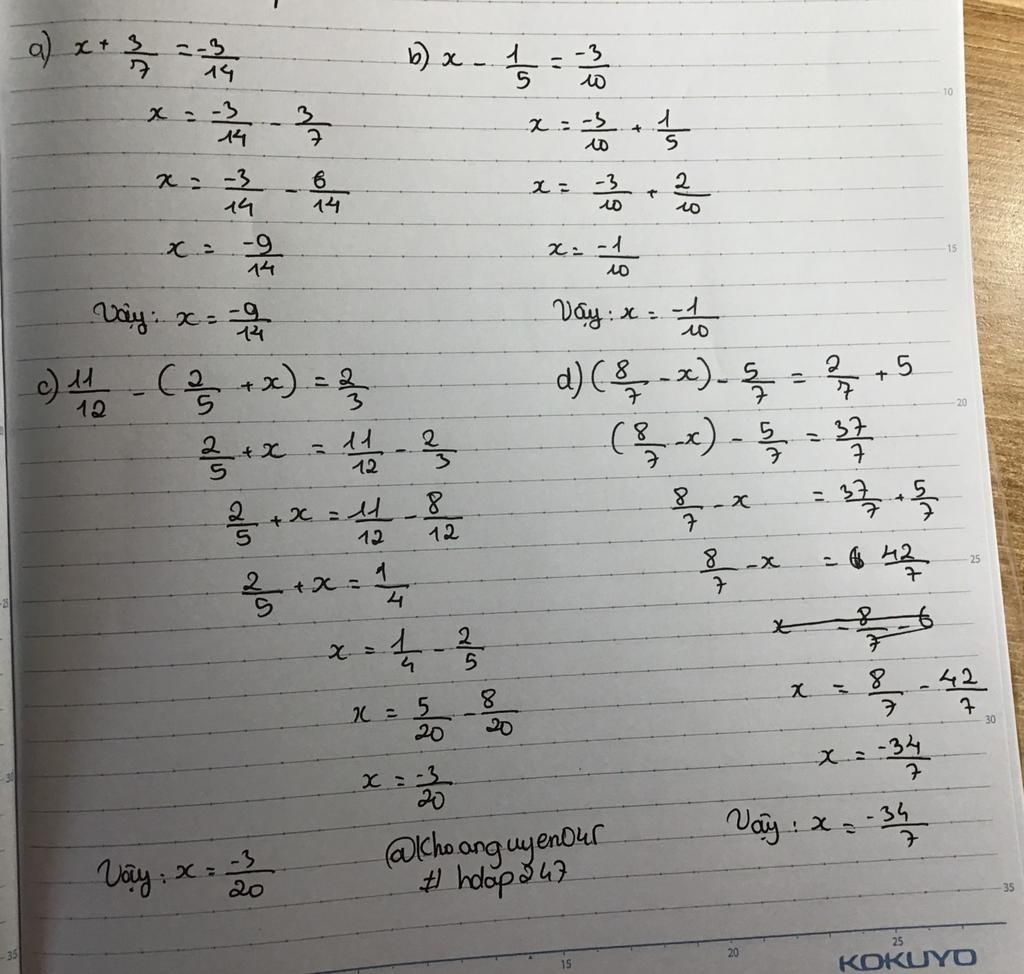 a) x + 3/7 = -3/14
x = -3/14 - 3/7
x = -3/14 - 6/14
x = -9/14
Vậy: x = -9/14
b) x - 1/5 = -3/10
x = -3/10 + 1/5
x = -3/10 + 2/10
x = -1/10
Vậy: x = -1/10
c) 11/12 - (2/5 + x) = 2/3
2/5 + x = 11/12 - 2/3
2/5 + x = 11/12 - 8/12
2/5 + x = 1/4
x = 1/4 - 2/5
x = 5/20 - 8/20
x = -3/20
Vậy: x = -3/20
d) (8/7 - x) - 5/7 = 2/7 + 5
(8/7 - x) - 5/7 = 37/7
8/7 - x = 37/7 + 5/7
8/7 - x = 42/7
x = 8/7 - 6
x = 8/7 - 42/7
x = -34/7
Vậy: x = -34/7
@Khoanguyen045
# hdap247
10
15
20
25
30
35
15
20
25
KOKUYO
35